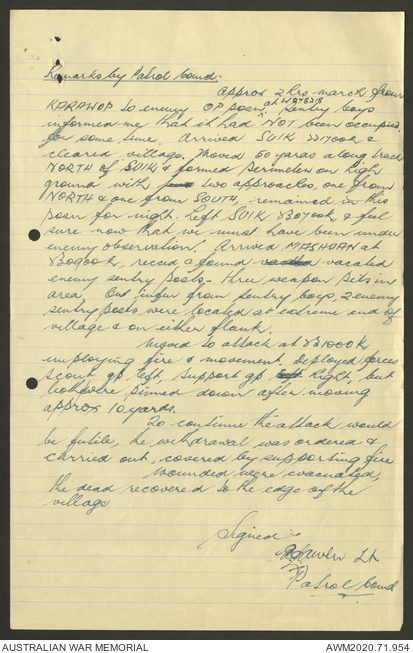 Remarks by Patrol Comd:
Approx 2 hrs march from
KARAWOP to enemy OP posn at W878218 sentry boys
informed me that it had NOT been occupied
for some time. Arrived SUIK 221700K &
cleared village. Moved 50 yards along track
NORTH of SUIK & formed perimeter on high
ground with two approaches one from
NORTH & one from SOUTH, remained in this
posn for night. Left SUIK 230700K, & feel
sure now that we must have been under
enemy observation. Arrived MASHUAN at
230900K, recced & found vacated
enemy sentry posts - three weapon pits in
area. Our infm from sentry boys, 2 enemy
sentry posts were located at extreme end of
village & on either flank.
Moved to attack at 231000K
employing fire & movement, deployed forces
scout gp left, support gp right, but
both were pinned down after moving
approx 10 yards.
To continue the attack would
be futile, the withdrawal was ordered &
carried out, covered by supporting fire
Wounded were evacuated,
the dead recovered to the edge of the
village
Signed -
Lt
Patrol Comd
AUSTRALIAN WAR MEMORIAL
AWM2020.71.954